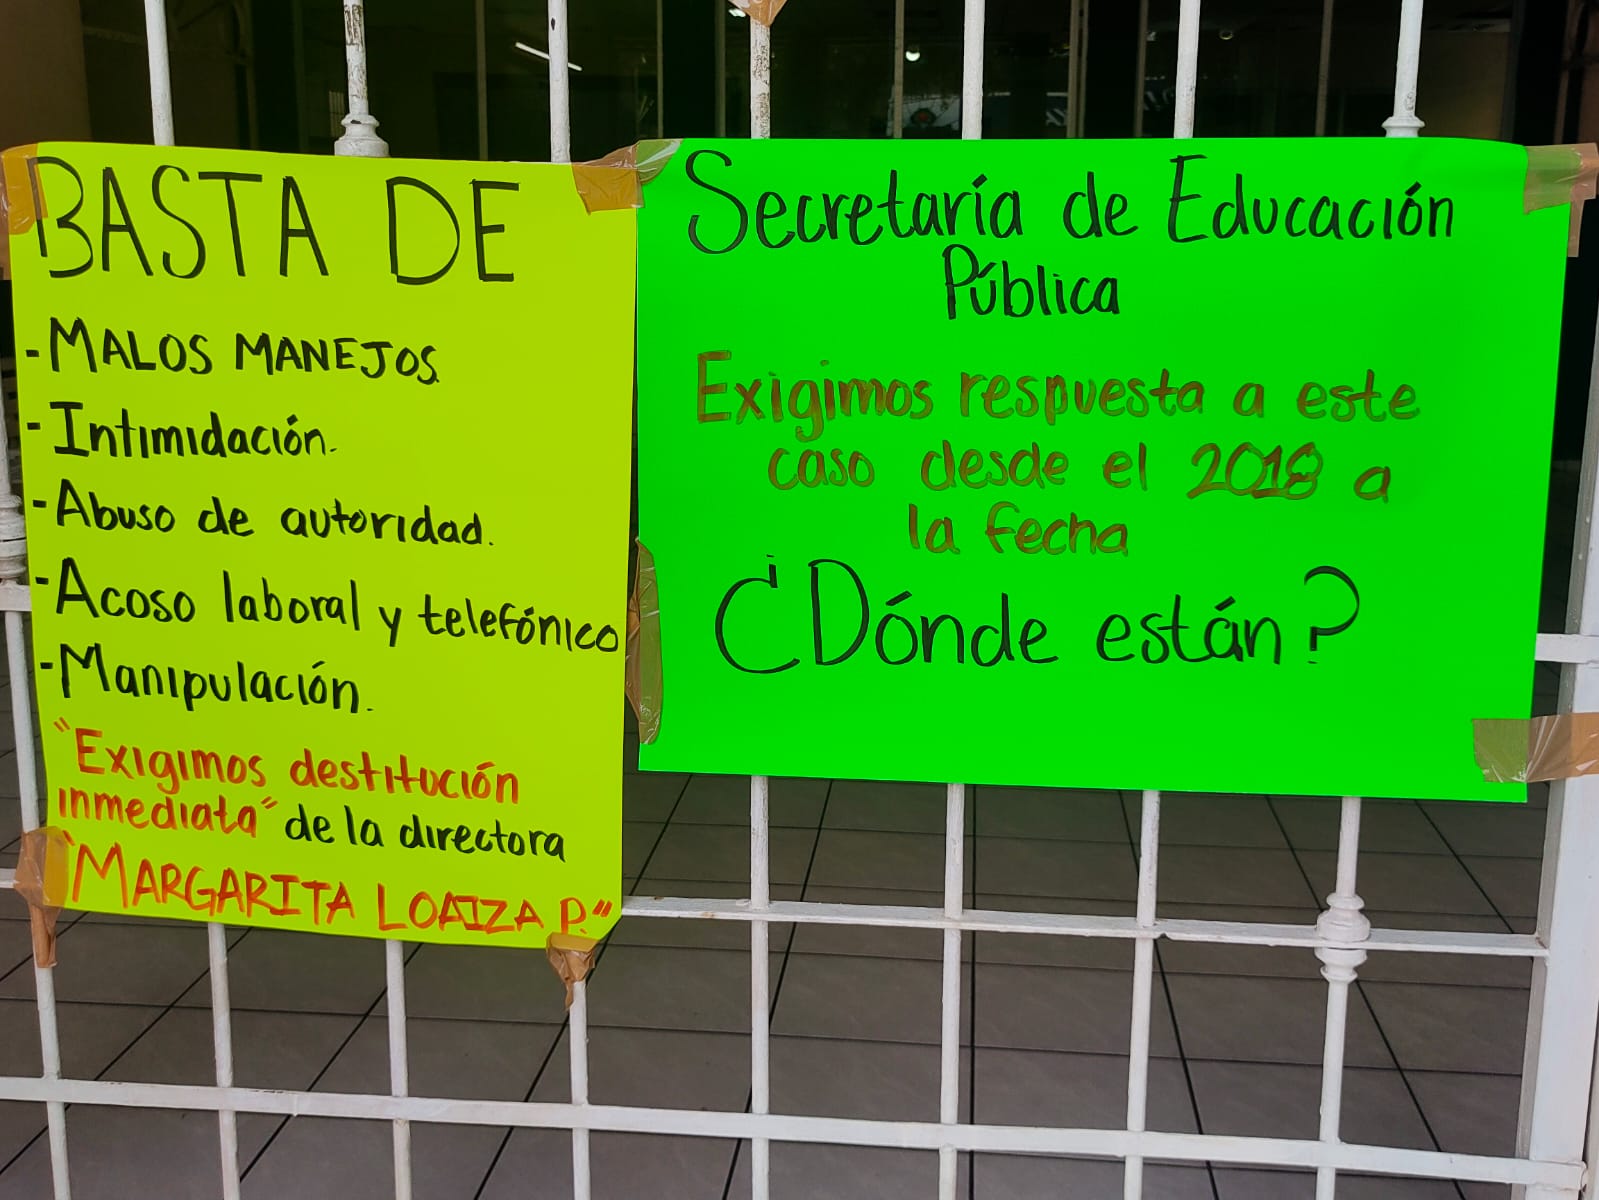 BASTA DE
-MALOS MANEJOS.
-Intimidación.
-Abuso de autoridad.
-Acoso laboral y telefónico
-Manipulación.
"Exigimos destitución
inmediata" de la directora
"MARGARITA LOAIZA P."
Secretaría de Educación
Pública
Exigimos respuesta a este
caso desde el 2018 a
la fecha
¿Dónde están?